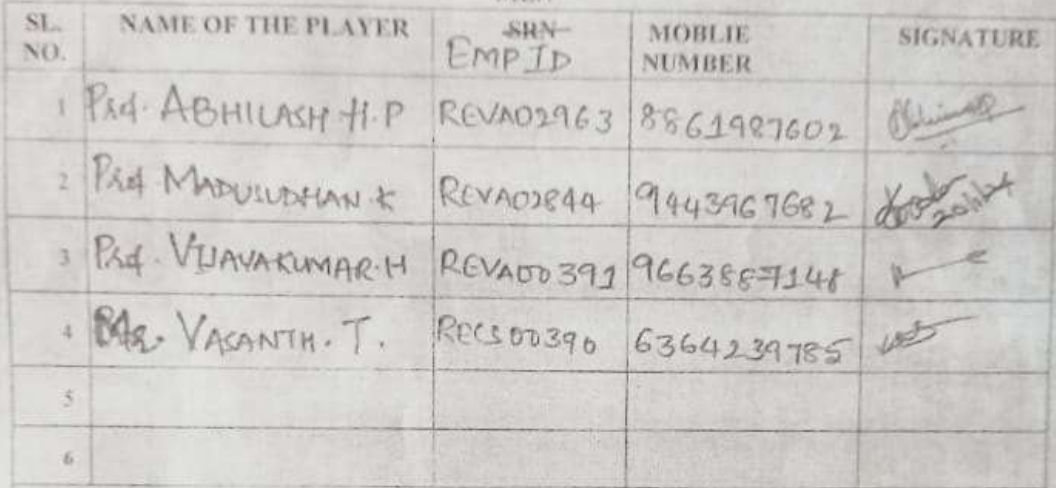 SL. NO. NAME OF THE PLAYER SRN EMP ID MOBLIE NUMBER SIGNATURE
1 Prof. ABHILASH H.P REVA02963 8861987602
2 Prof MADUSUDHAN K REVA02844 9443967682
3 Prof. VIJAYAKUMAR.H REVA00391 9663887148
4 Mr. VASANTH. T. RECS00390 6364239785
5
6